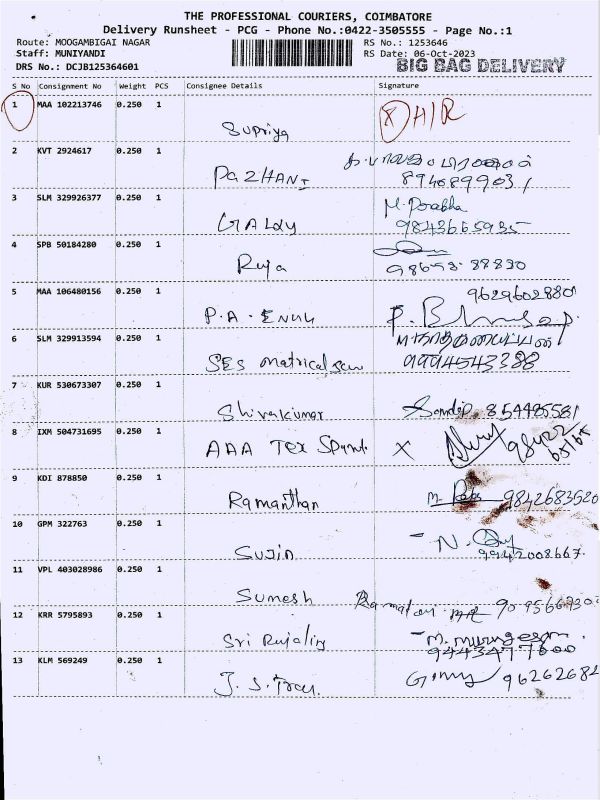 THE PROFESSIONAL COURIERS, COIMBATORE
Delivery Runsheet - PCG - Phone No.:0422-3505555 - Page No.:1
Route: MOOGAMBIGAI NAGAR RS No.: 1253646
Staff: MUNIYANDI RS Date: 06-Oct-2023
DRS No.: DCJB125364601 BIG BAG DELIVERY
S No Consignment No Weight PCS Consignee Details Signature
1 MAA 102213746 0.250 1
Supriya H/R
2 KVT 2924617 0.250 1
PAZHANI
3 SLM 329926377 0.250 1 M. Prabha
9843665935
4 SPB 50184280 0.250 1
Ruja
5 MAA 106480156 0.250 1 9629602880
P.A.
6 SLM 329913594 0.250 1
SES 9994543388
7 KUR 530673307 0.250 1
Shivakumar Sandip
8 IXM 504731695 0.250 1
AAA Tex X
9 KDI 878850 0.250 1
Ramanthan 9842683520
10 GPM 322763 0.250 1
Sujin 9942008667
11 VPL 403028986 0.250 1
Sumesh
12 KRR 5795893 0.250 1
Sri M. Murugesan
9443477600
13 KLM 569249 0.250 1
J.S.